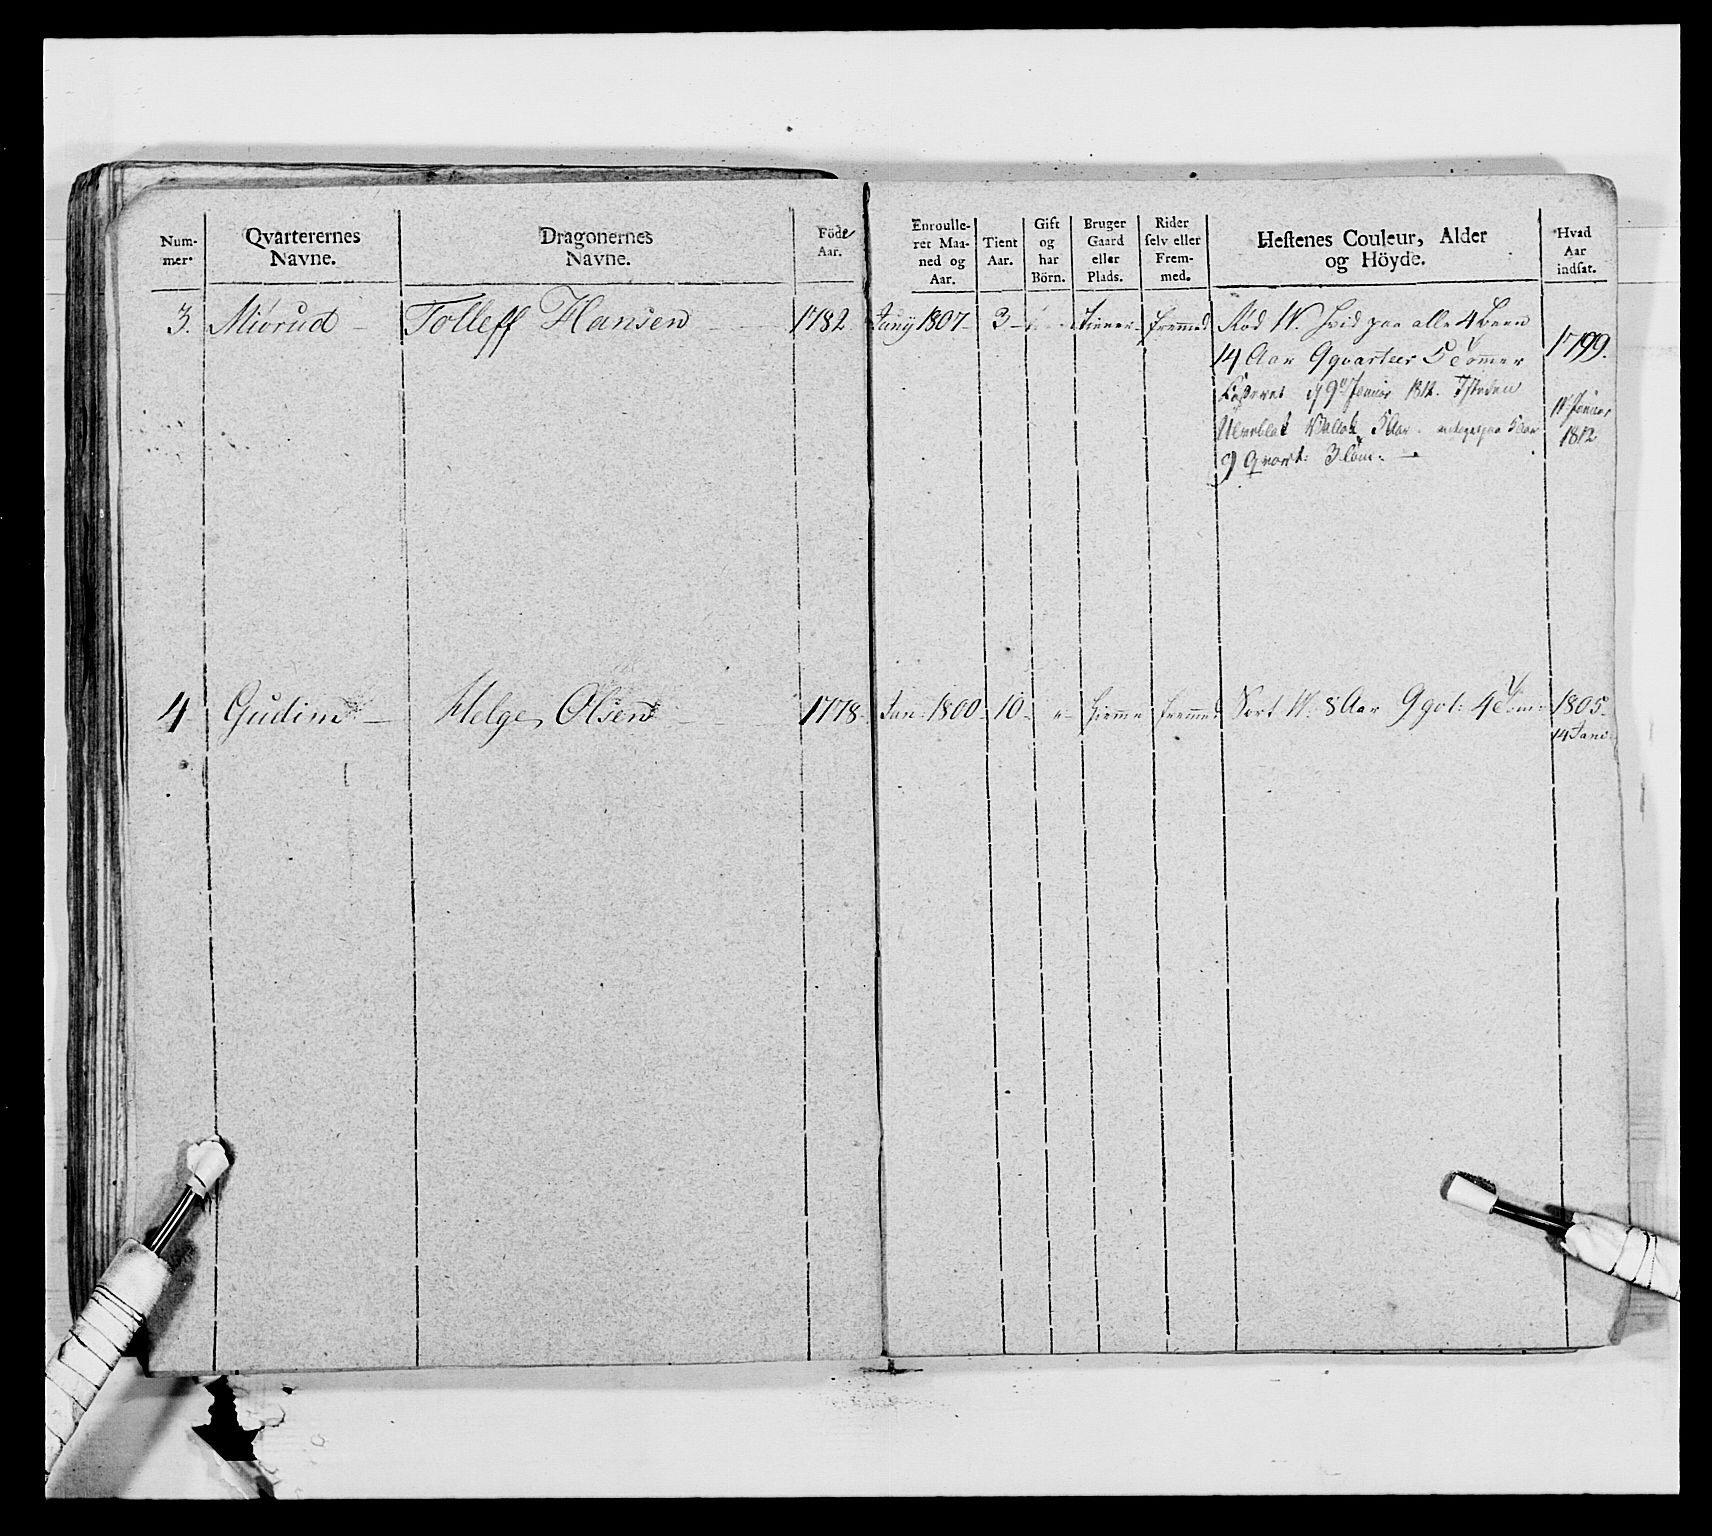 Num-
mer.
Qvarterernes
Navne.
Dragonernes
Navne.
Föde
Aar.
Enroulle-
ret Maa-
ned og
Aar.
Tient
Aar.
Gift
og
har
Börn.
Bruger
Gaard
eller
Plads.
Rider
selv eller
Frem-
med.
Hestenes Couleur, Alder
og Höyde.
Hvad
Aar
indsat.
3. Miörud Tolleff Hansen 1782 Juny 1807 3 Tiener fremmed Röd W. hvid paa alle 4 Been
14 Aar 9 qvarteer 5 Tommer 1799.
Casseret d 9 Januar 1812. Isteden
5 Aar
9 Qvart: 3 Tom:
Januar
1812
4 Gudim Helge Olsen 1778 Jan: 1800 10 fremmed Sort W: 8 Aar 9 qvt: 4 Tom: 1805
14 Jan: